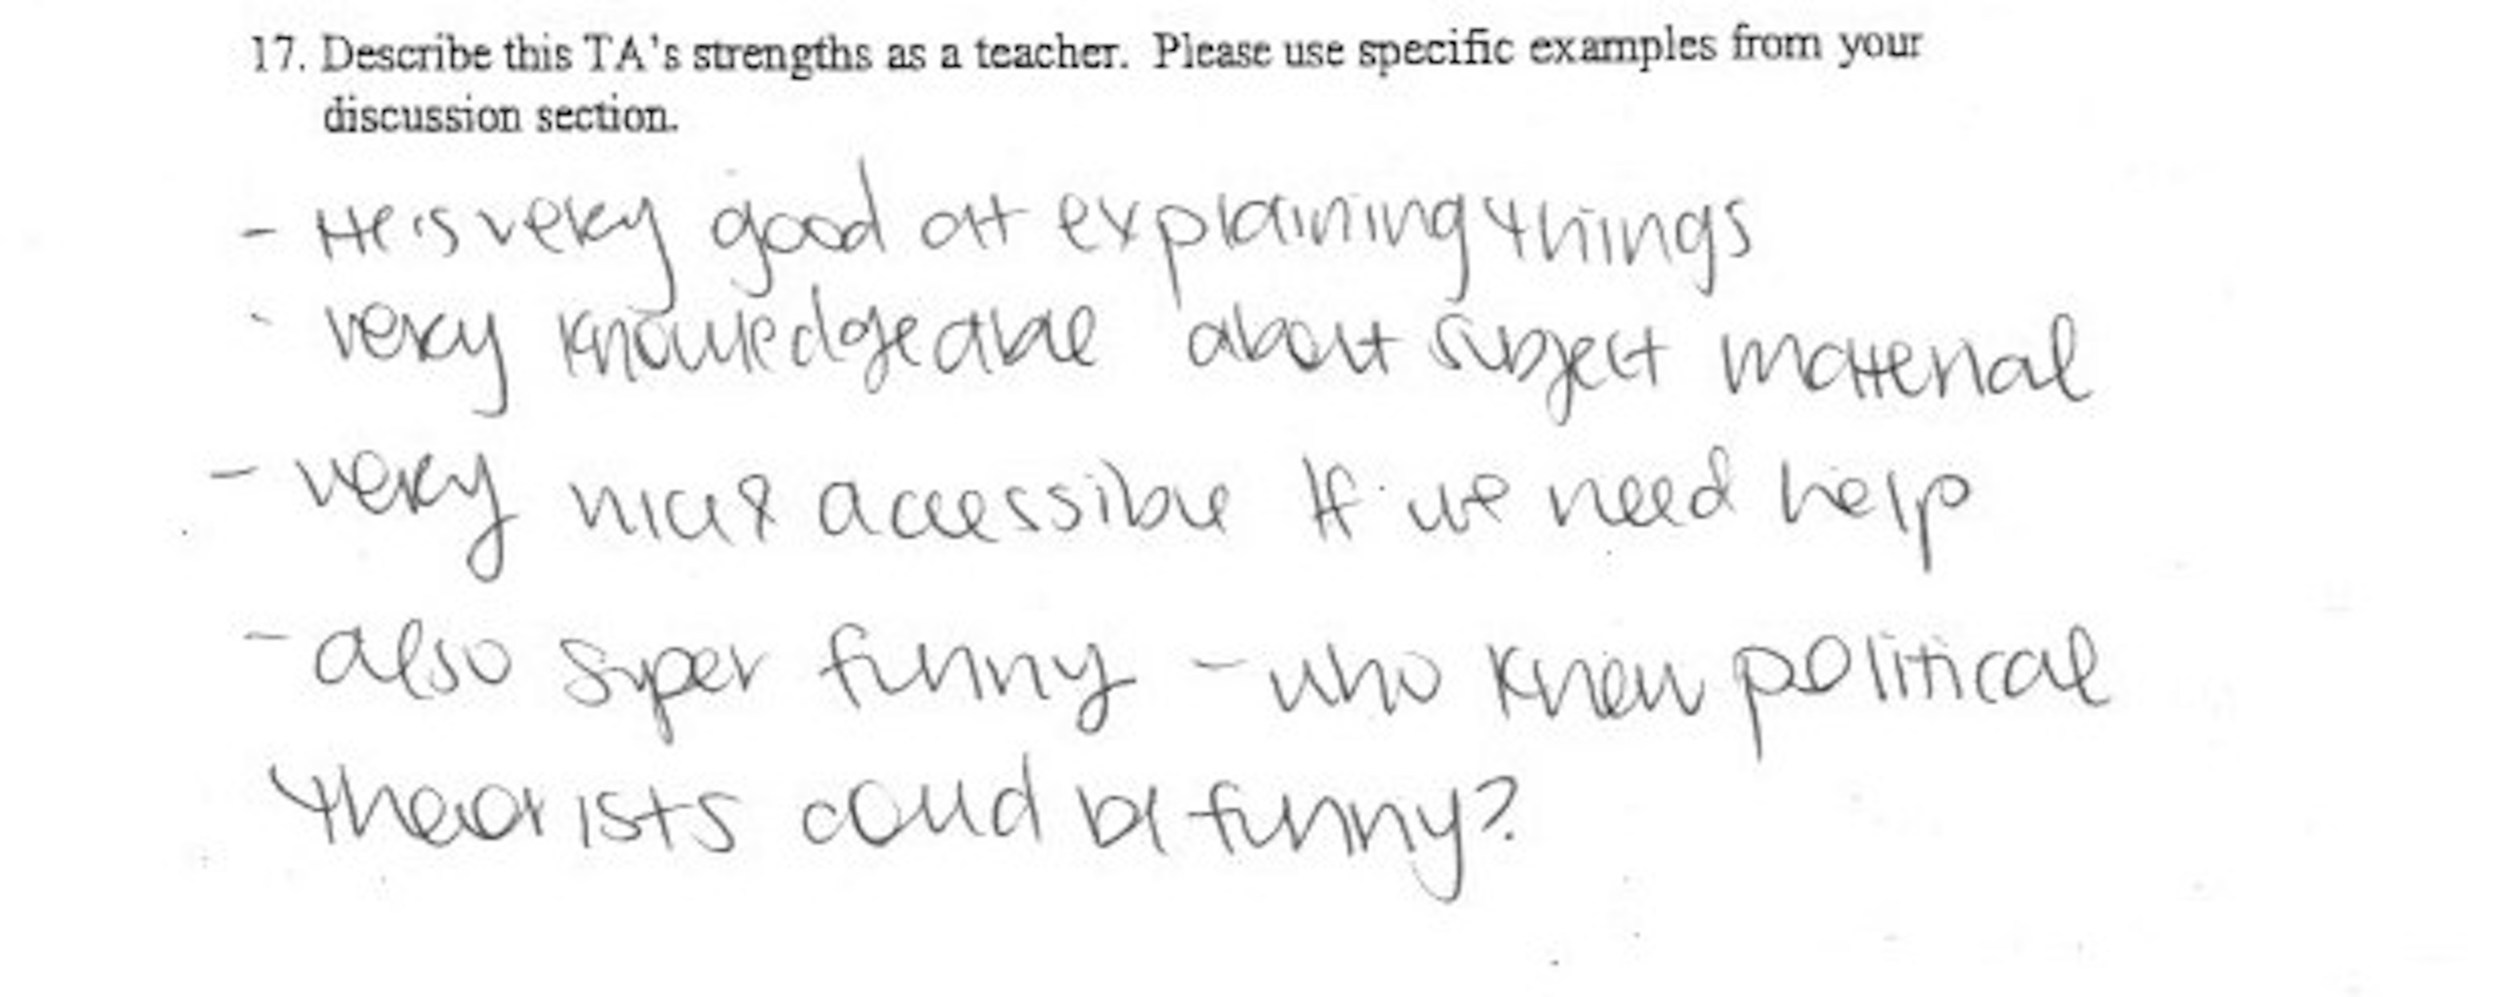 17. Describe this TA's strengths as a teacher. Please use specific examples from your
discussion section.
- He is very good at explaining things
- very knowledgeable about subject material
- very nice & accessible if we need help
- also super funny - who knew political
theorists could be funny?